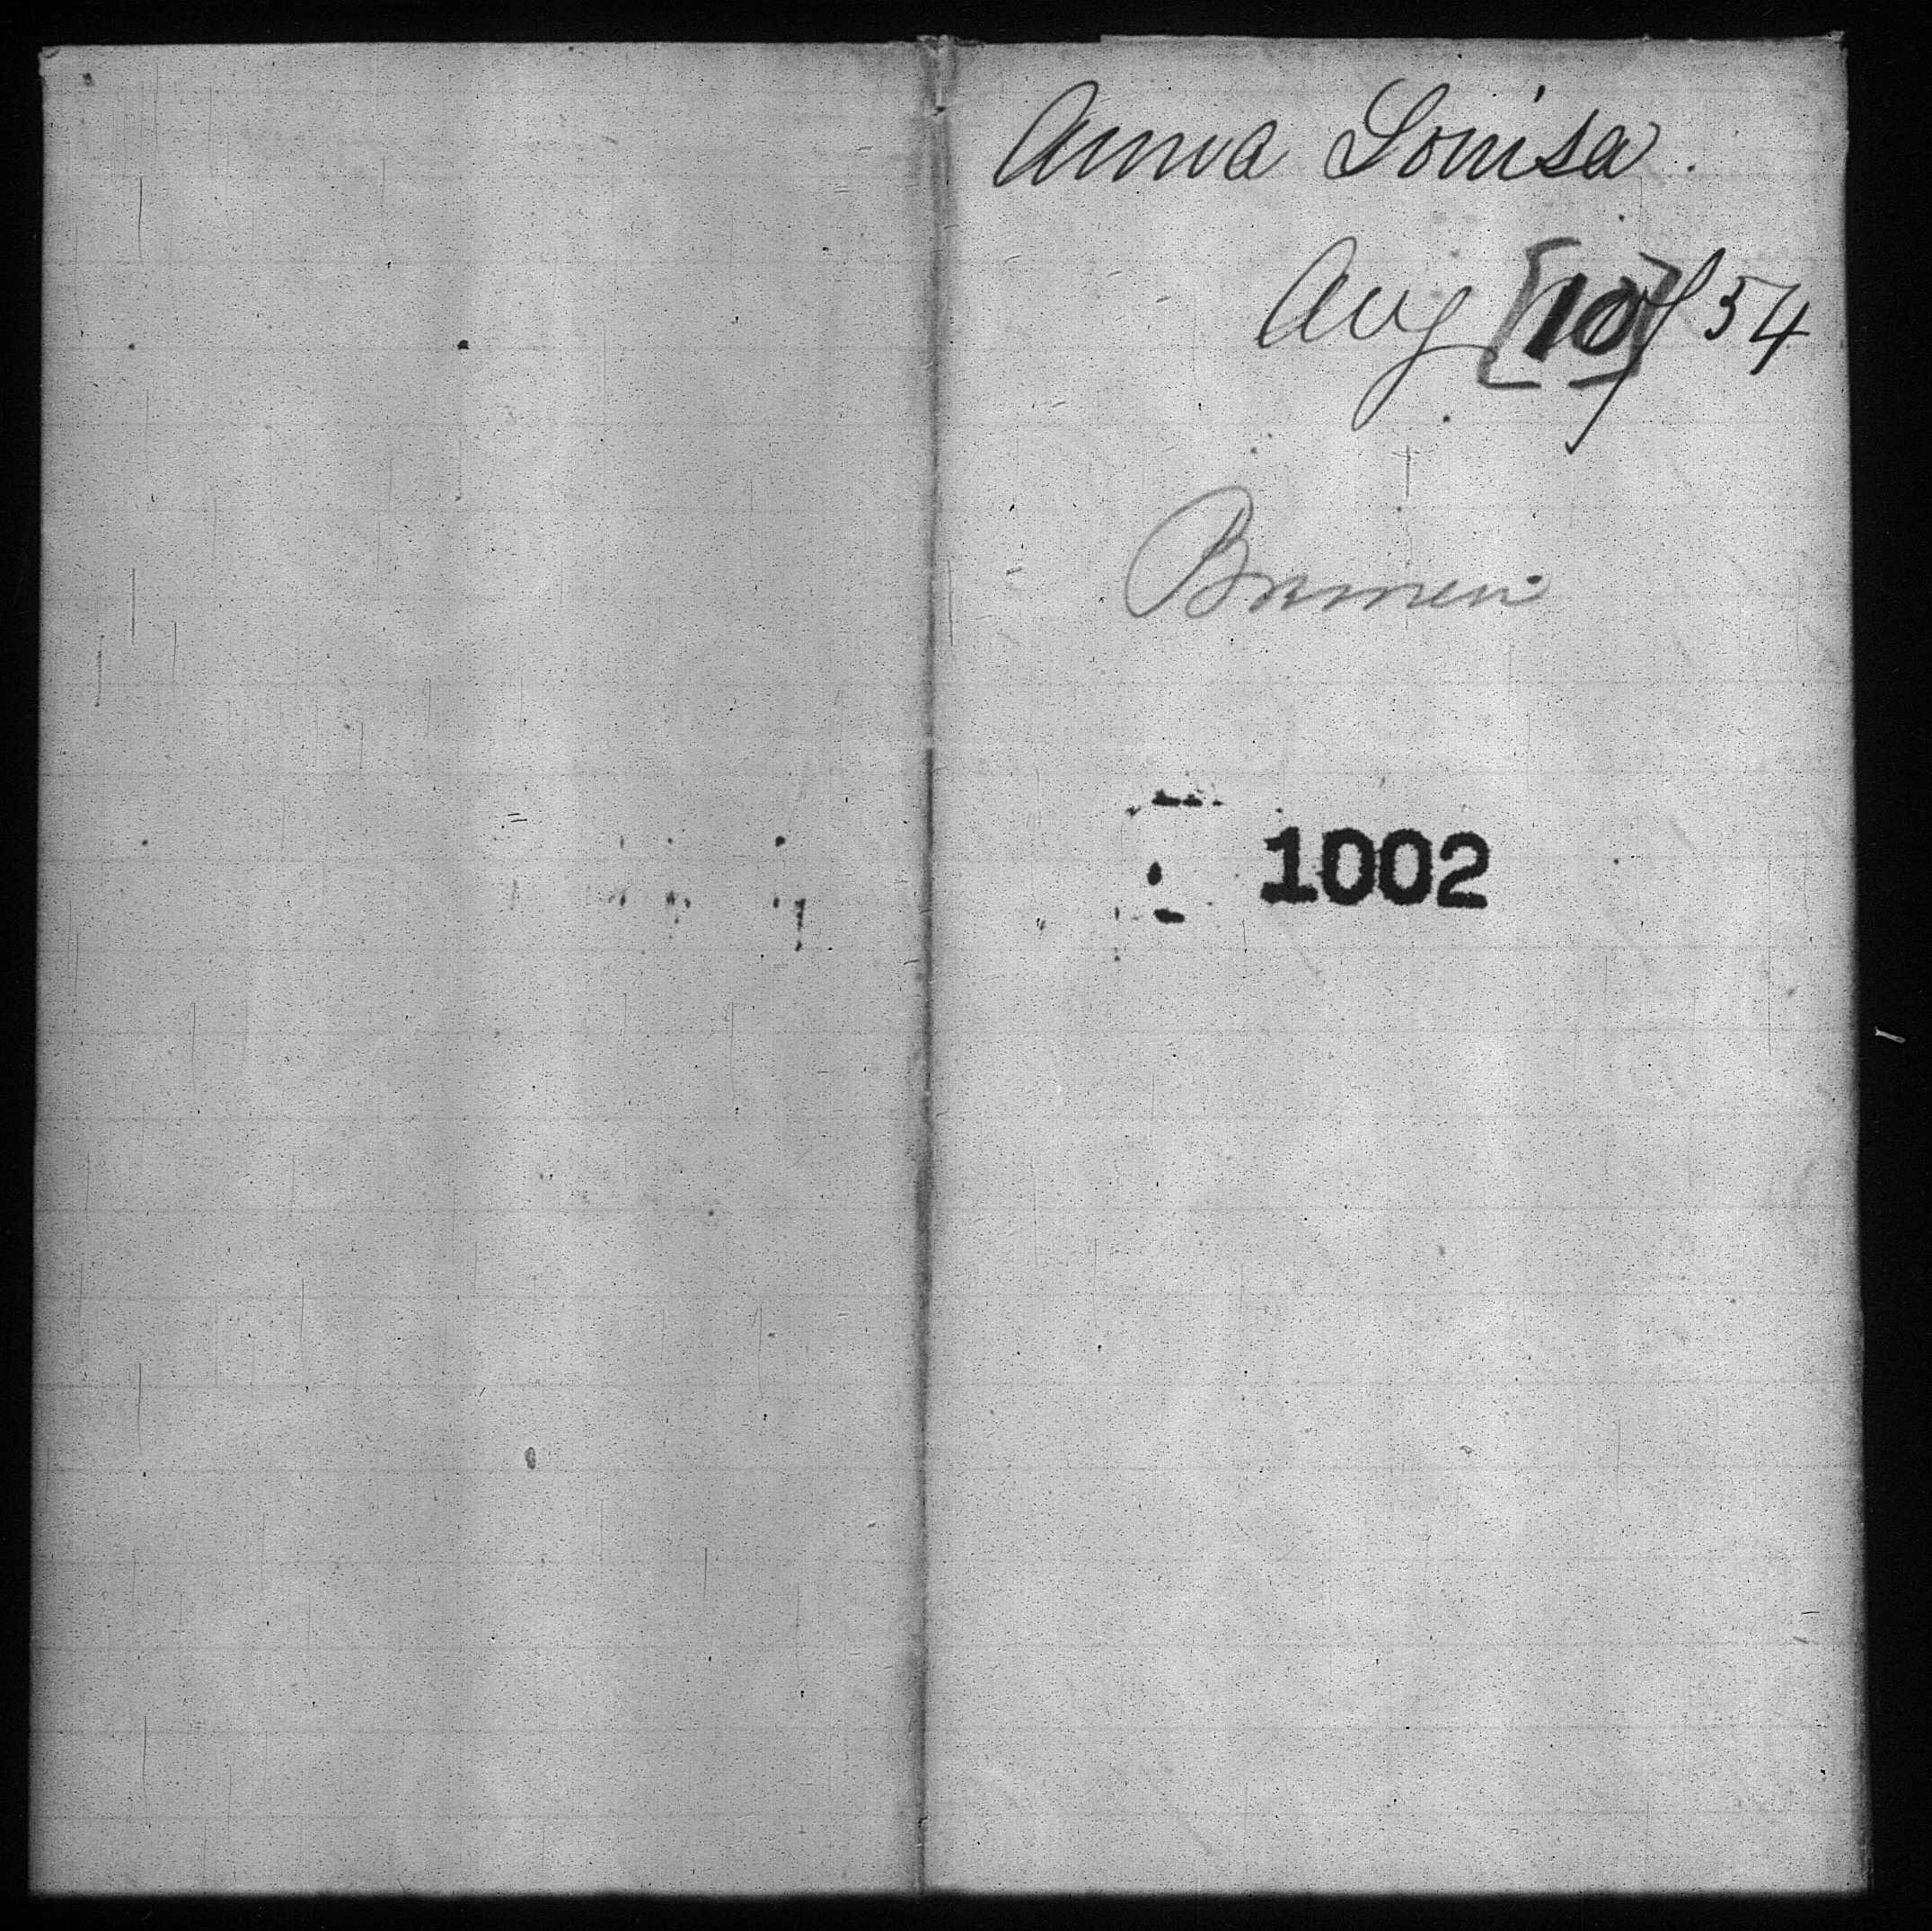 Anna Louisa.
Aug [10]/54
Bremen
1002